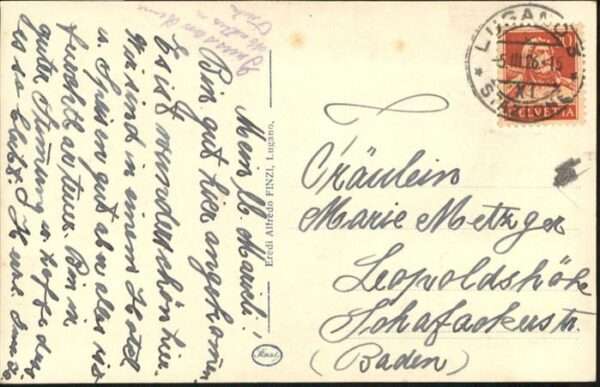 Mein lb Mariele!
Bin gut hier angekomm.
Es ist wunderschön hier.
Wir sind in einem Hotel
u. Speisen gut aber alles
furchtbar teuer. Bin in
guter Stimung u. hoffe dass
es so bleibt.
Eredi Alfredo FINZI, Lugano.
LUGANO
5.III.26.-15
XI
STAZIONE
HELVETIA
Fräulein
Marie Metzger
Leopoldshöhe
(Baden)